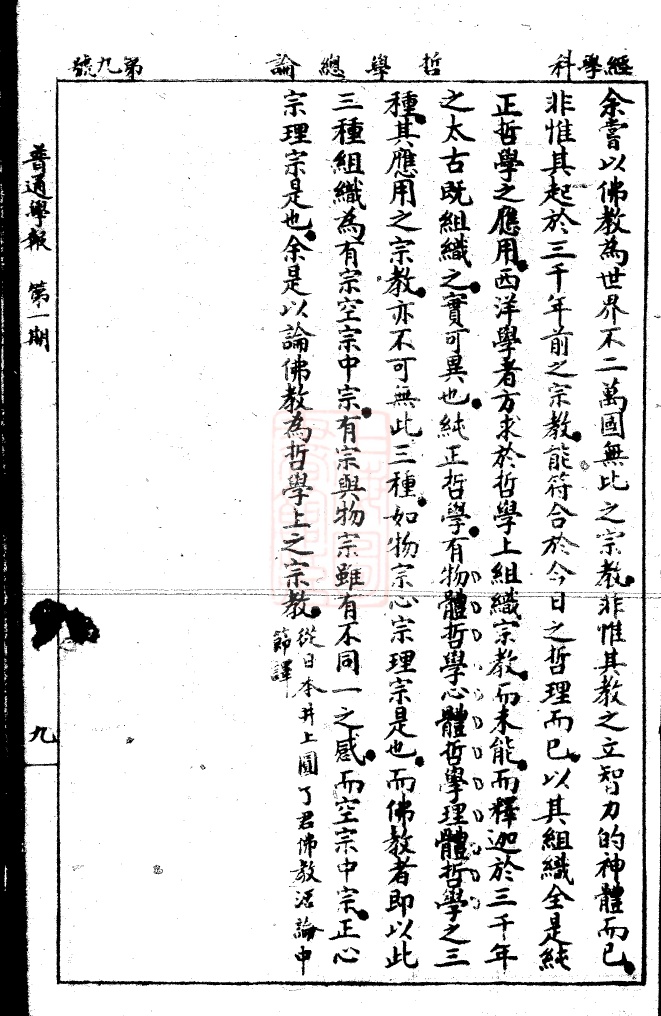 經學科
哲學總論
第九號
余嘗以佛教為世界不二萬國無比之宗教非惟其教之立智力的神體而已
非惟其起於三千年前之宗教能符合於今日之哲理而已以其組織全是純
正哲學之應用西洋學者方求於哲學上組織宗教而未能而釋迦於三千年
之太古既組織之實可異也純正哲學有物體哲學心體哲學理體哲學之三
種其應用之宗教亦不可無此三種如物宗心宗理宗是也而佛教者即以此
三種組織為有宗空宗中宗有宗與物宗雖有不同一之感而空宗中宗正心
宗理宗是也余是以論佛教為哲學上之宗教
從日本井上圓了君佛教活論中
節譯
普通學報 第一期
九